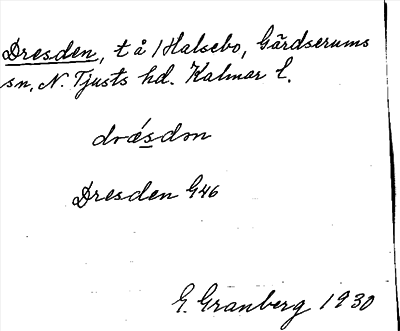 Dresden, t å /Halsebo, Gärdserums
sn, N. Tjusts hd. Kalmar l.
dræ´sdɔn
Dresden G46
G. Granberg 1930